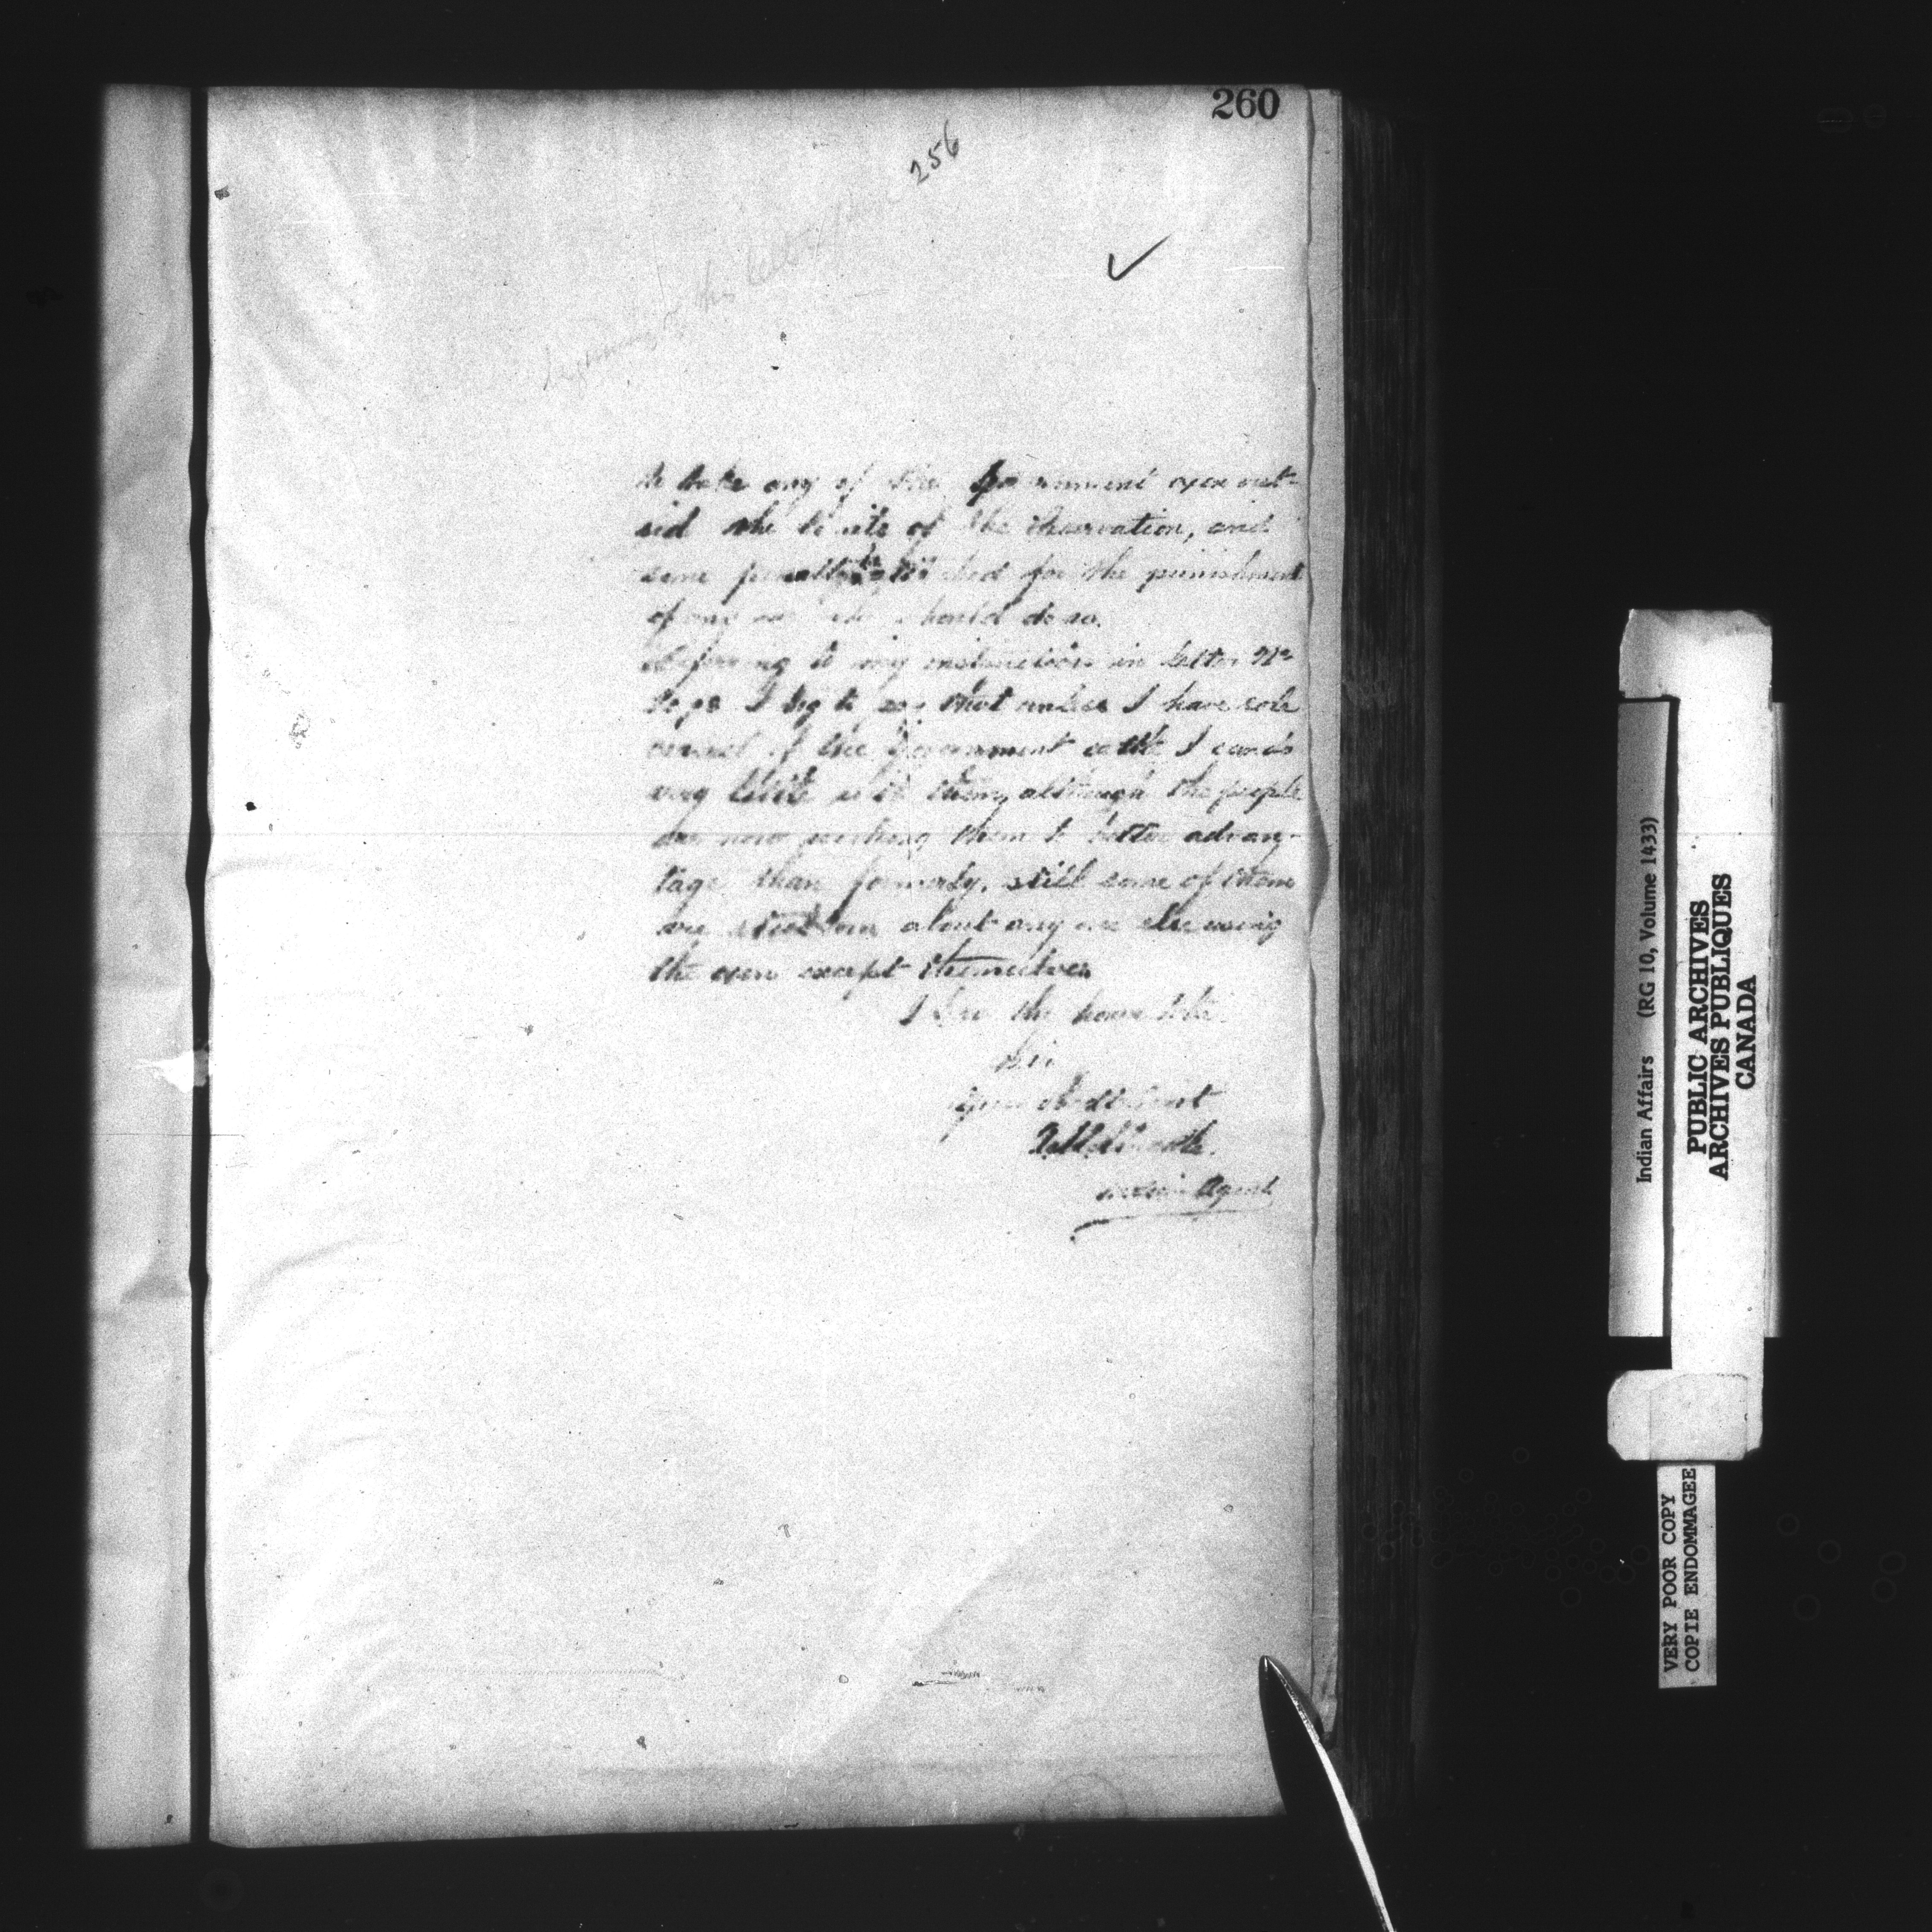 260
256
beginning of this letter page
to take any of the Government oxen out-
sid the limits of the Reservation, and
some penalty be attached for the punishment
of any one who should do so.
Referring to my instructions in letter No
I beg to say that unless I have sole
control of the Government cattle I can do
very little with them, although the people
are now working them to better advan-
tage than formerly, still some of them
are about any one else using
the oxen except themselves
I have the honor to be
Sir
Your obedt servant
Indian Agent
Indian Affairs (RG 10, Volume 1433)
PUBLIC ARCHIVES
ARCHIVES PUBLIQUES
CANADA
VERY POOR COPY
COPIE ENDOMMAGEE